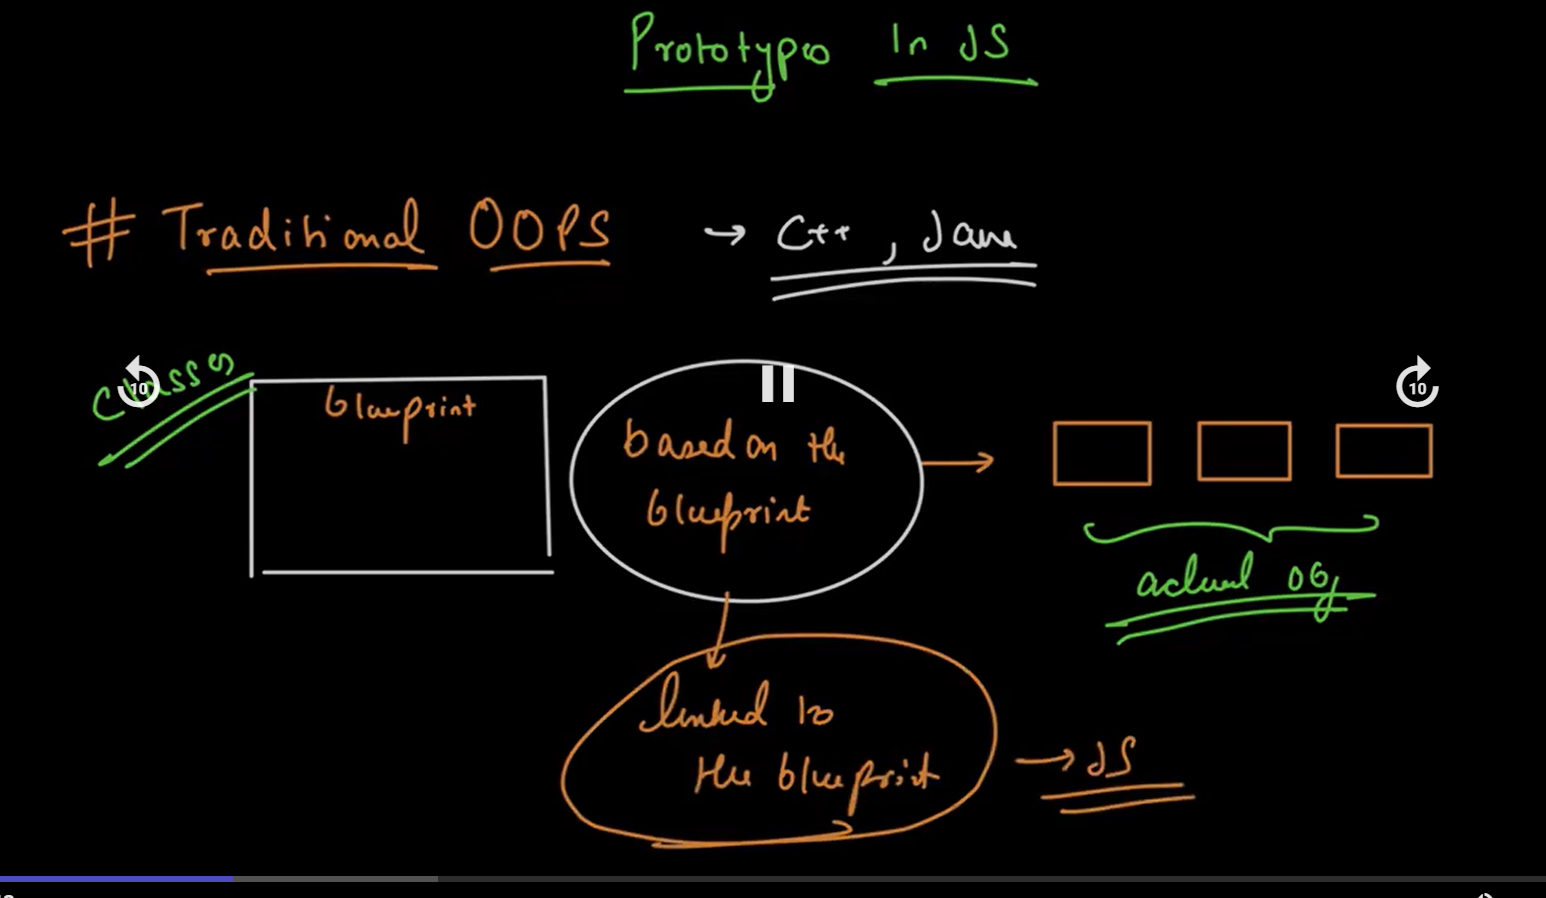 Prototypes In JS
# Traditional OOPS → C++, Java
Classes
blueprint
based on the
blueprint
10
10
actual obj
linked to
the blueprint
→ JS